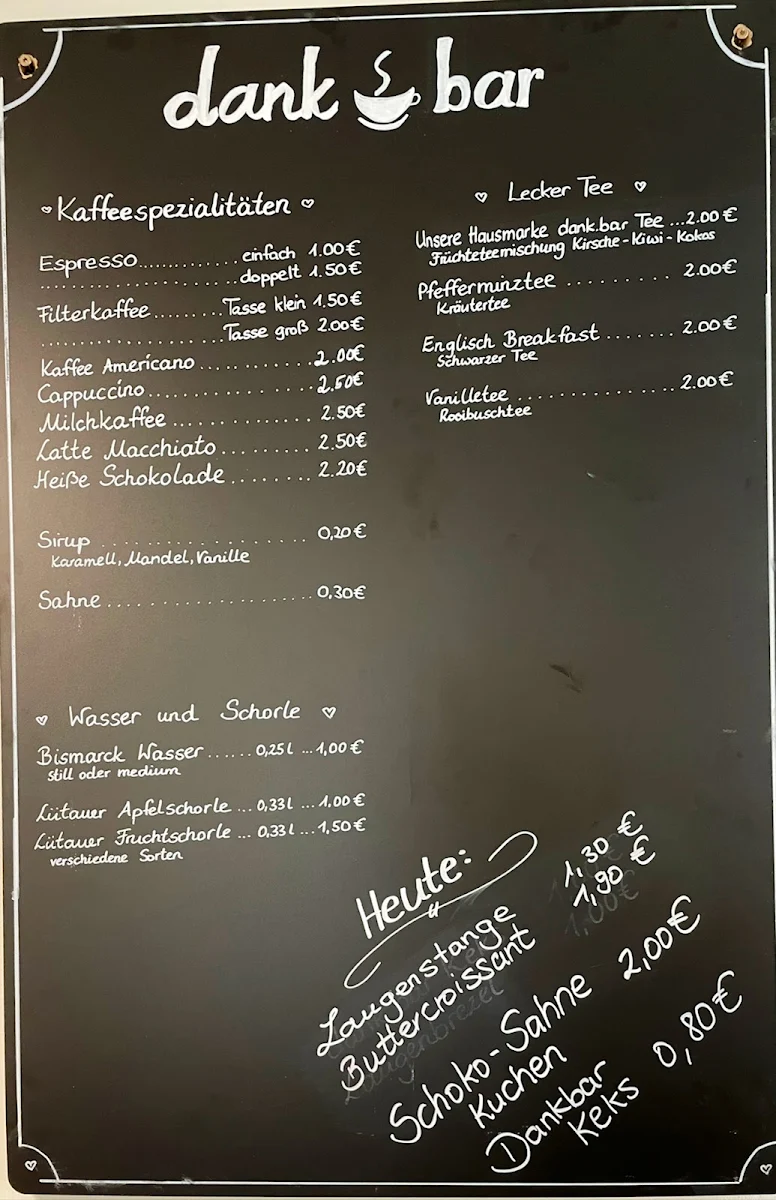 dank bar
Kaffeespezialitäten
Espresso............. einfach 1.00€
........................ doppelt 1.50€
Filterkaffee......... Tasse klein 1.50€
........................ Tasse groß 2.00€
Kaffee Americano ............ 2.00€
Cappuccino .................. 2.50€
Milchkaffee ................. 2.50€
Latte Macchiato ........... 2.50€
Heiße Schokolade ........ 2.20€
Sirup ........................ 0,20€
Karamell, Mandel, Vanille
Sahne ....................... 0,30€
Wasser und Schorle
Bismarck Wasser ...... 0,25l ... 1,00€
still oder medium
Lütauer Apfelschorle ... 0,33l ... 1.00€
Lütauer Fruchtschorle ... 0,33l ... 1,50€
verschiedene Sorten
Lecker Tee
Unsere Hausmarke dank.bar Tee ...2.00€
Früchteteemischung Kirsche-Kiwi-Kokos
Pfefferminztee .......... 2.00€
Kräutertee
Englisch Breakfast ....... 2.00€
Schwarzer Tee
Vanilletee ................ 2.00€
Rooibuschtee
Heute:
Laugenstange 1,30 €
Buttercroissant 1,90 €
Laugenbrezel 1,00€
Schoko-Sahne 2,00€
Kuchen
Dankbar 0,80€
Keks